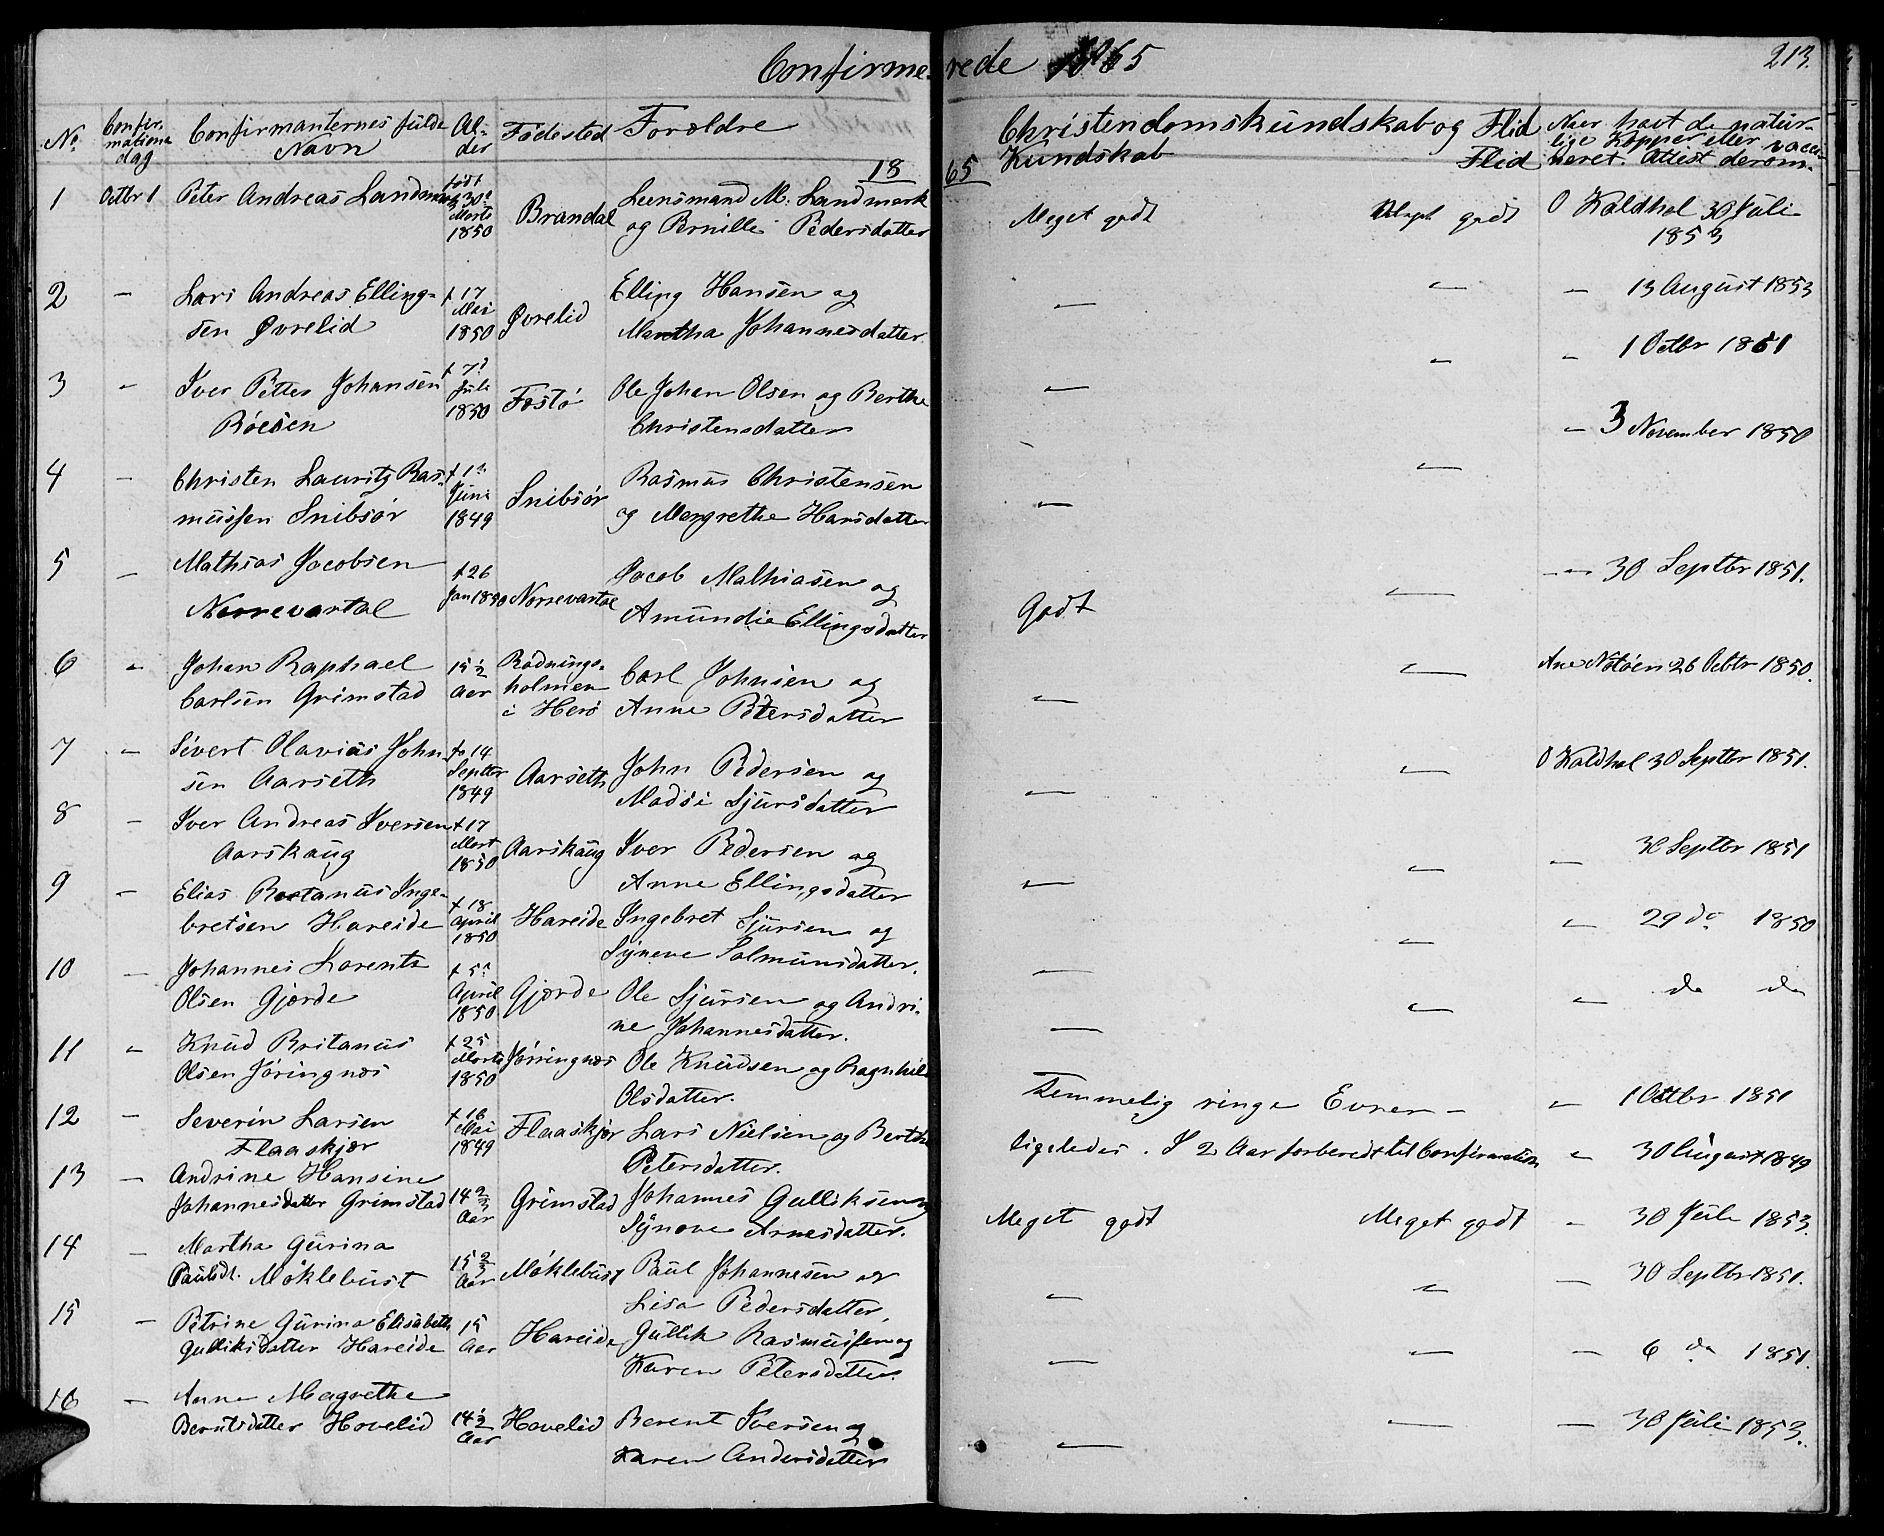 Confirmerede 1865
213.
No.
Confirmations dag
Confirmanternes fulde Navn
Alder
Fødested
Forældre
Christendomskundskab og Flid
Kundskab
Flid
Naar havt de naturlige Kopper eller vaccineret. Attest derom.
1865
1 Octbr 1 Peter Andreas Landmark født 30 Marts 1850 Brandal Lensmand M. Landmark og Pernille Pedersdatter Meget godt Meget godt O Kaldhol 30 Juli 1853
2 – Lars Andreas Ellingsen Øvrelid + 17 Mai 1850 Øvrelid Elling Hansen og Martha Johannesdatter. – – – 13 August 1853
3 – Iver Petter Johansen Røesen + 7 Juli 1850 Fostø Ole Johan Olsen og Berthe Christensdatter – – – 1 Octbr 1851
4 – Christen Lauritz Rasmussen Snibsør + 1 Juni 1849 Snibsør Rasmus Christensen og Margrethe Hansdatter – – – 3 November 1850
5 – Mathias Jacobsen Norrevartal + 26 Jan 1850 Norrevartal Jacob Mathiasen og Amundia Ellingsdatter Godt – – 30 Septbr 1851.
6 – Johan Raphael Carlsen Grimstad 15 1/2 Aar Rødningsholmen i Herø Carl Johnsen og Anne Petersdatter – – Ane Nøtøen 26 Octbr 1850.
7 – Sivert Olavius Johnsen Aarseth + 14 Septbr 1849 Aarseth John Pedersen og Madsi Sjursdatter – – O Kaldhol 30 Septbr 1851.
8 – Iver Andreas Iversen Aarskaug + 17 Mart 1850 Aarskaug Iver Pedersen og Anne Ellingsdatter – – – 30 Septbr 1851
9 – Elias Rastanus Ingebretsen Hareide + 18 April 1850 Hareide Ingebret Sjursen og Syneve Salmunsdatter. – – – 29 do 1850
10 – Johannes Lorents Olsen Gjerde + 5 April 1850 Gjerde Ole Sjursen og Andrine Johannesdatter. – – – do do
11 – Knud Britanus Olsen Jøringnæs + 25 Marts 1850 Jørringnæs Ole Knudsen og Ragnhild Olsdatter. Temmelig ringe Evner – – 1 Octbr 1851
12 – Severin Larsen Flaaskjær + 16 Mai 1849 Flaaskjær Lars Nielsen og Berthe Petersdatter. ligeledes. I 2 Aar forberedt til Confirmation – 30 August 1849
13 – Andrine Hansine Johannesdatter Grimstad 14 2/3 Aar Grimstad Johannes Gulliksen og Synøve Arnesdatter. Meget godt Meget godt – 30 Juli 1853.
14 – Martha Gurina Paulsdt. Møklebust 15 2/3 Aar Møklebust Paul Johannesen og Lisa Pedersdatter – – – 30 Septbr 1851.
15 – Petrine Gurina Elisabeth Gulliksdatter Hareide 15 Aar Hareide Gullik Rasmussen og Karen Petersdatter – – – 6 do 1851.
16 – Anne Magrethe Berntsdatter Hovelid 14 1/2 Aar Hovelid Berent Iversen og Karen Andersdatter – – – 30 Juli 1853.